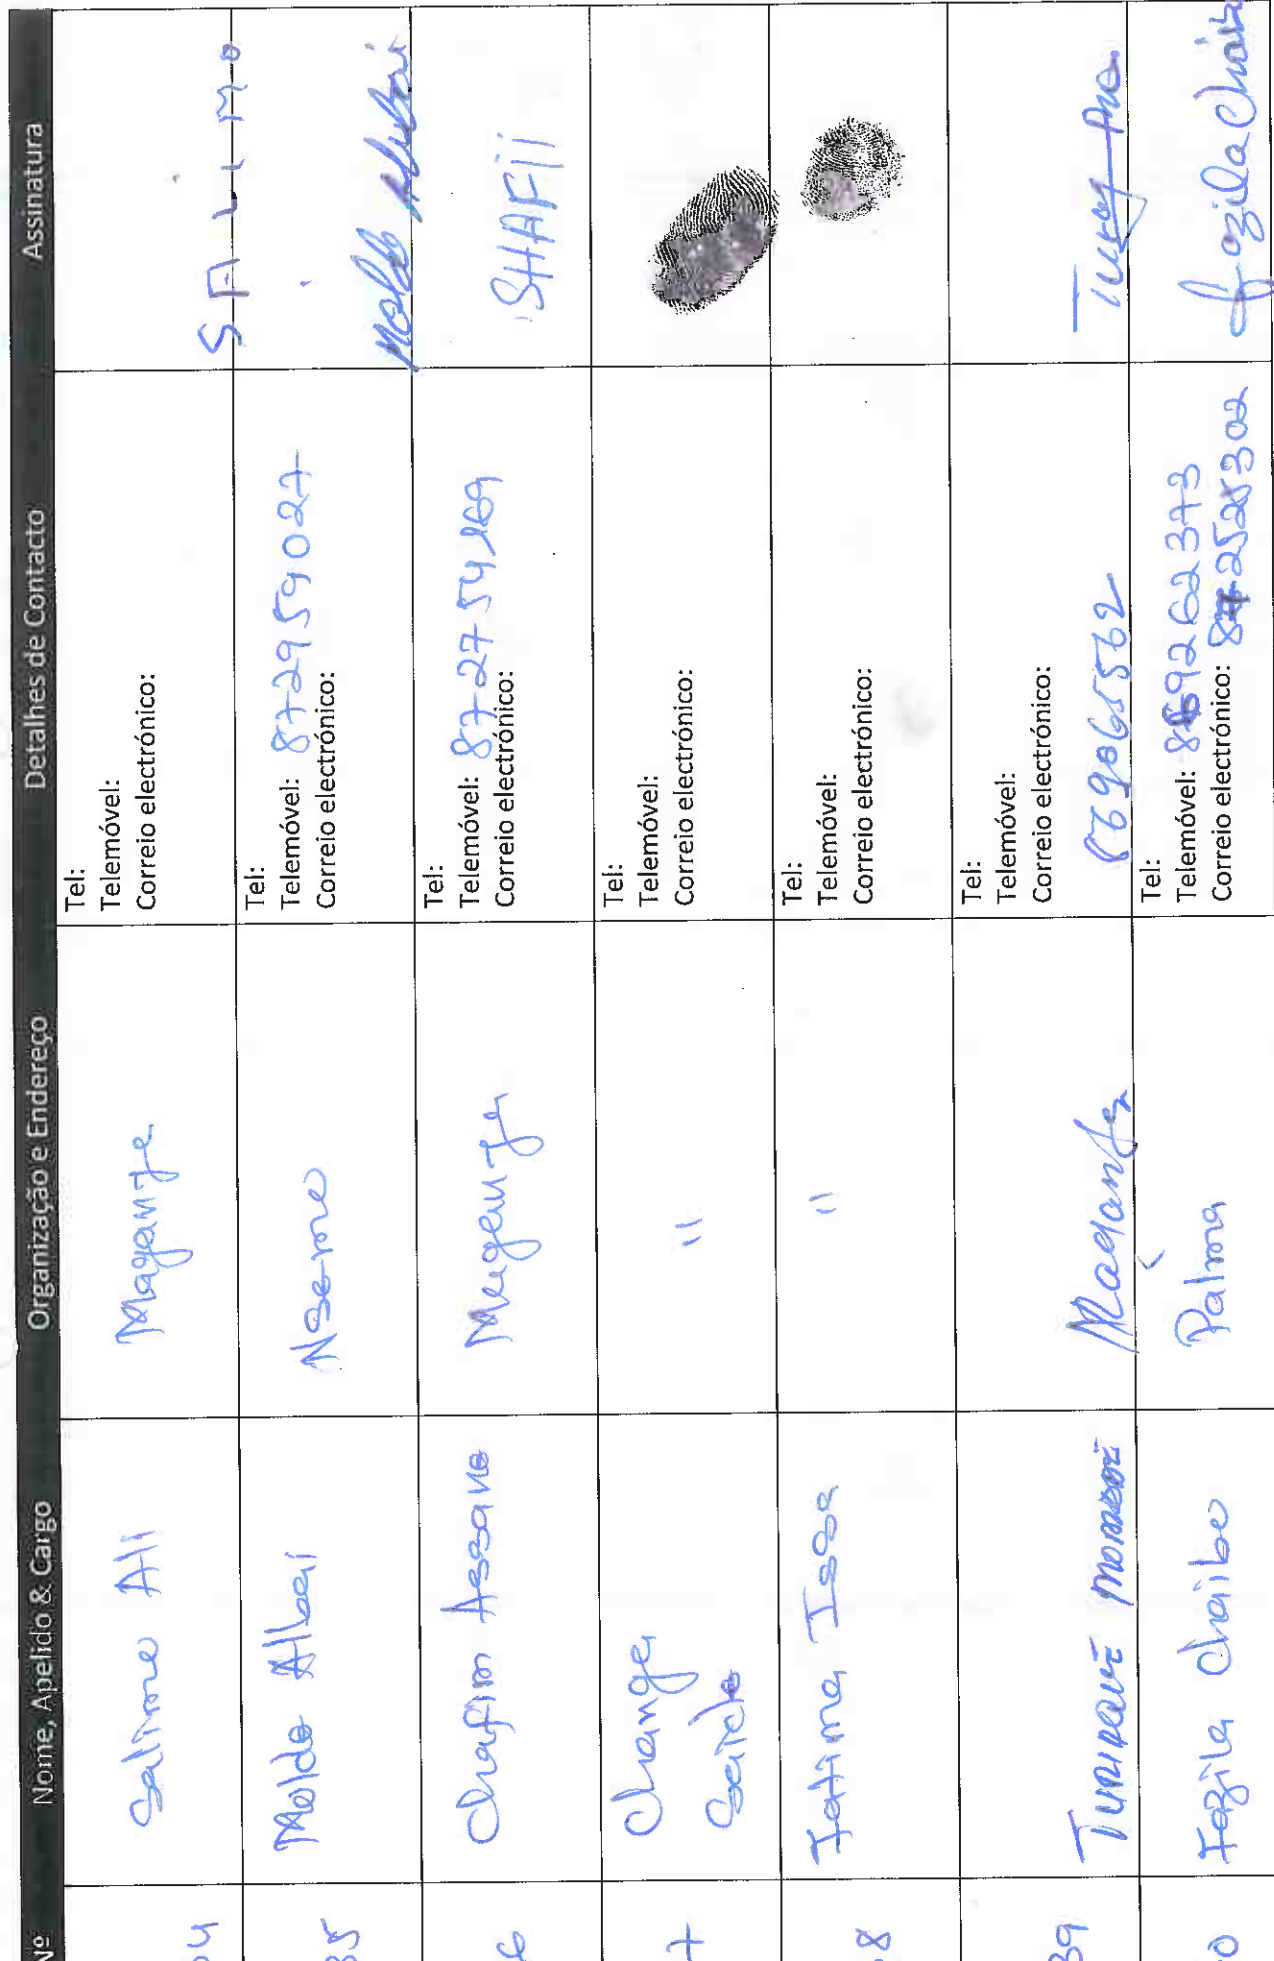 Nº Nome, Apelido & Cargo Organização e Endereço Detalhes de Contacto Assinatura
34 Salimo Ali Maganja
Tel:
Telemóvel:
Correio electrónico:
SALIMO
35 Molde Albai Nsemo
Tel:
Telemóvel: 872959027
Correio electrónico:
6 Chafim Assane
Tel:
Telemóvel: 872754169
Correio electrónico:
SHAFii
7 Changa
Saide
"
Tel:
Telemóvel:
Correio electrónico:
8 Fatima Issa "
Tel:
Telemóvel:
Correio electrónico:
39 Maganja
Tel:
Telemóvel:
Correio electrónico:
869065562
0 Fazila Chaibo Palma
Tel:
Telemóvel: 869262373
Correio electrónico: 842525302
Fazila Chaibo